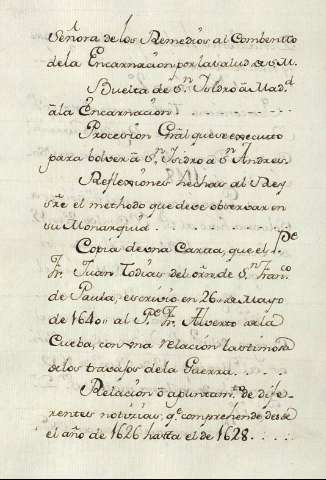 Señora de los Remedios al Combento
de la Encarnacion por la salud de S. M.
Buelta de Sn Isidro â Madd
â la Encarnacion
Procesion Gñal que se executò
para bolver â Sn Isidro â Sn Andres
Reflexiones hechas al Rey
sre el methodo que deve observar en
su Monarquia.
Copia de una Carta, que el Pe
Fr. Juan del orn de Sn Franco
de Paula, escrivio en 26 de Mayo
de 1640 al Pe Fr. Alverto de la
Cueba, con una relacion lastimosa
de los travajos de la Guerra.....
Relacion ô apuntamto de dife-
rentes noticias, qe comprehende desde
el año de 1626 hasta el de 1628....